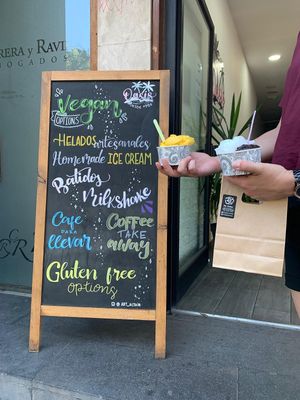 RERA y RAVI
OGADOS
Oakis
Vegan
OPTIONS
HELADOS artesanales
Homemade ICE CREAM
Batidos
Milkshake
Cafe
PARA
llevar
Coffee
TAKE
away
Gluten free
options